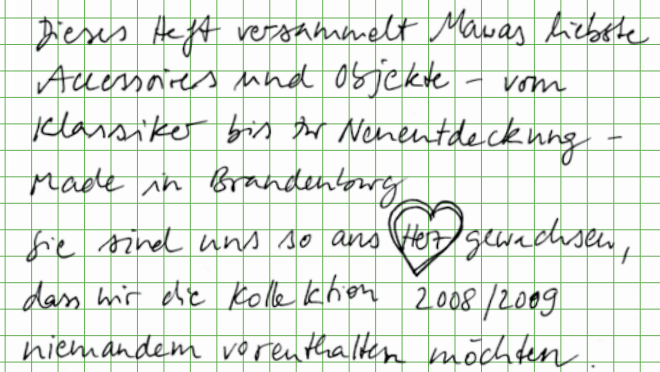 Dieses Heft versammelt Mawas liebste
Accessoires und Objekte – vom
Klassiker bis zur Neuentdeckung –
Made in Brandenburg
Sie sind uns so ans Herz gewachsen,
dass wir die Kollektion 2008/2009
niemandem vorenthalten möchten.